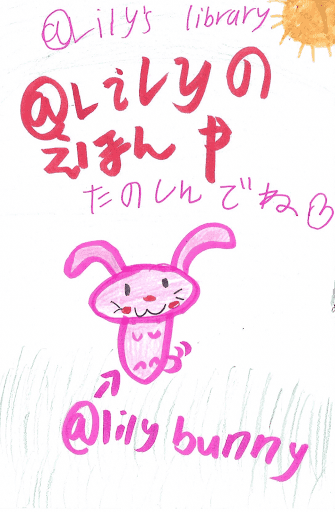 @Lily's library
@Lilyの
えほん
たのしんでね
@lily bunny